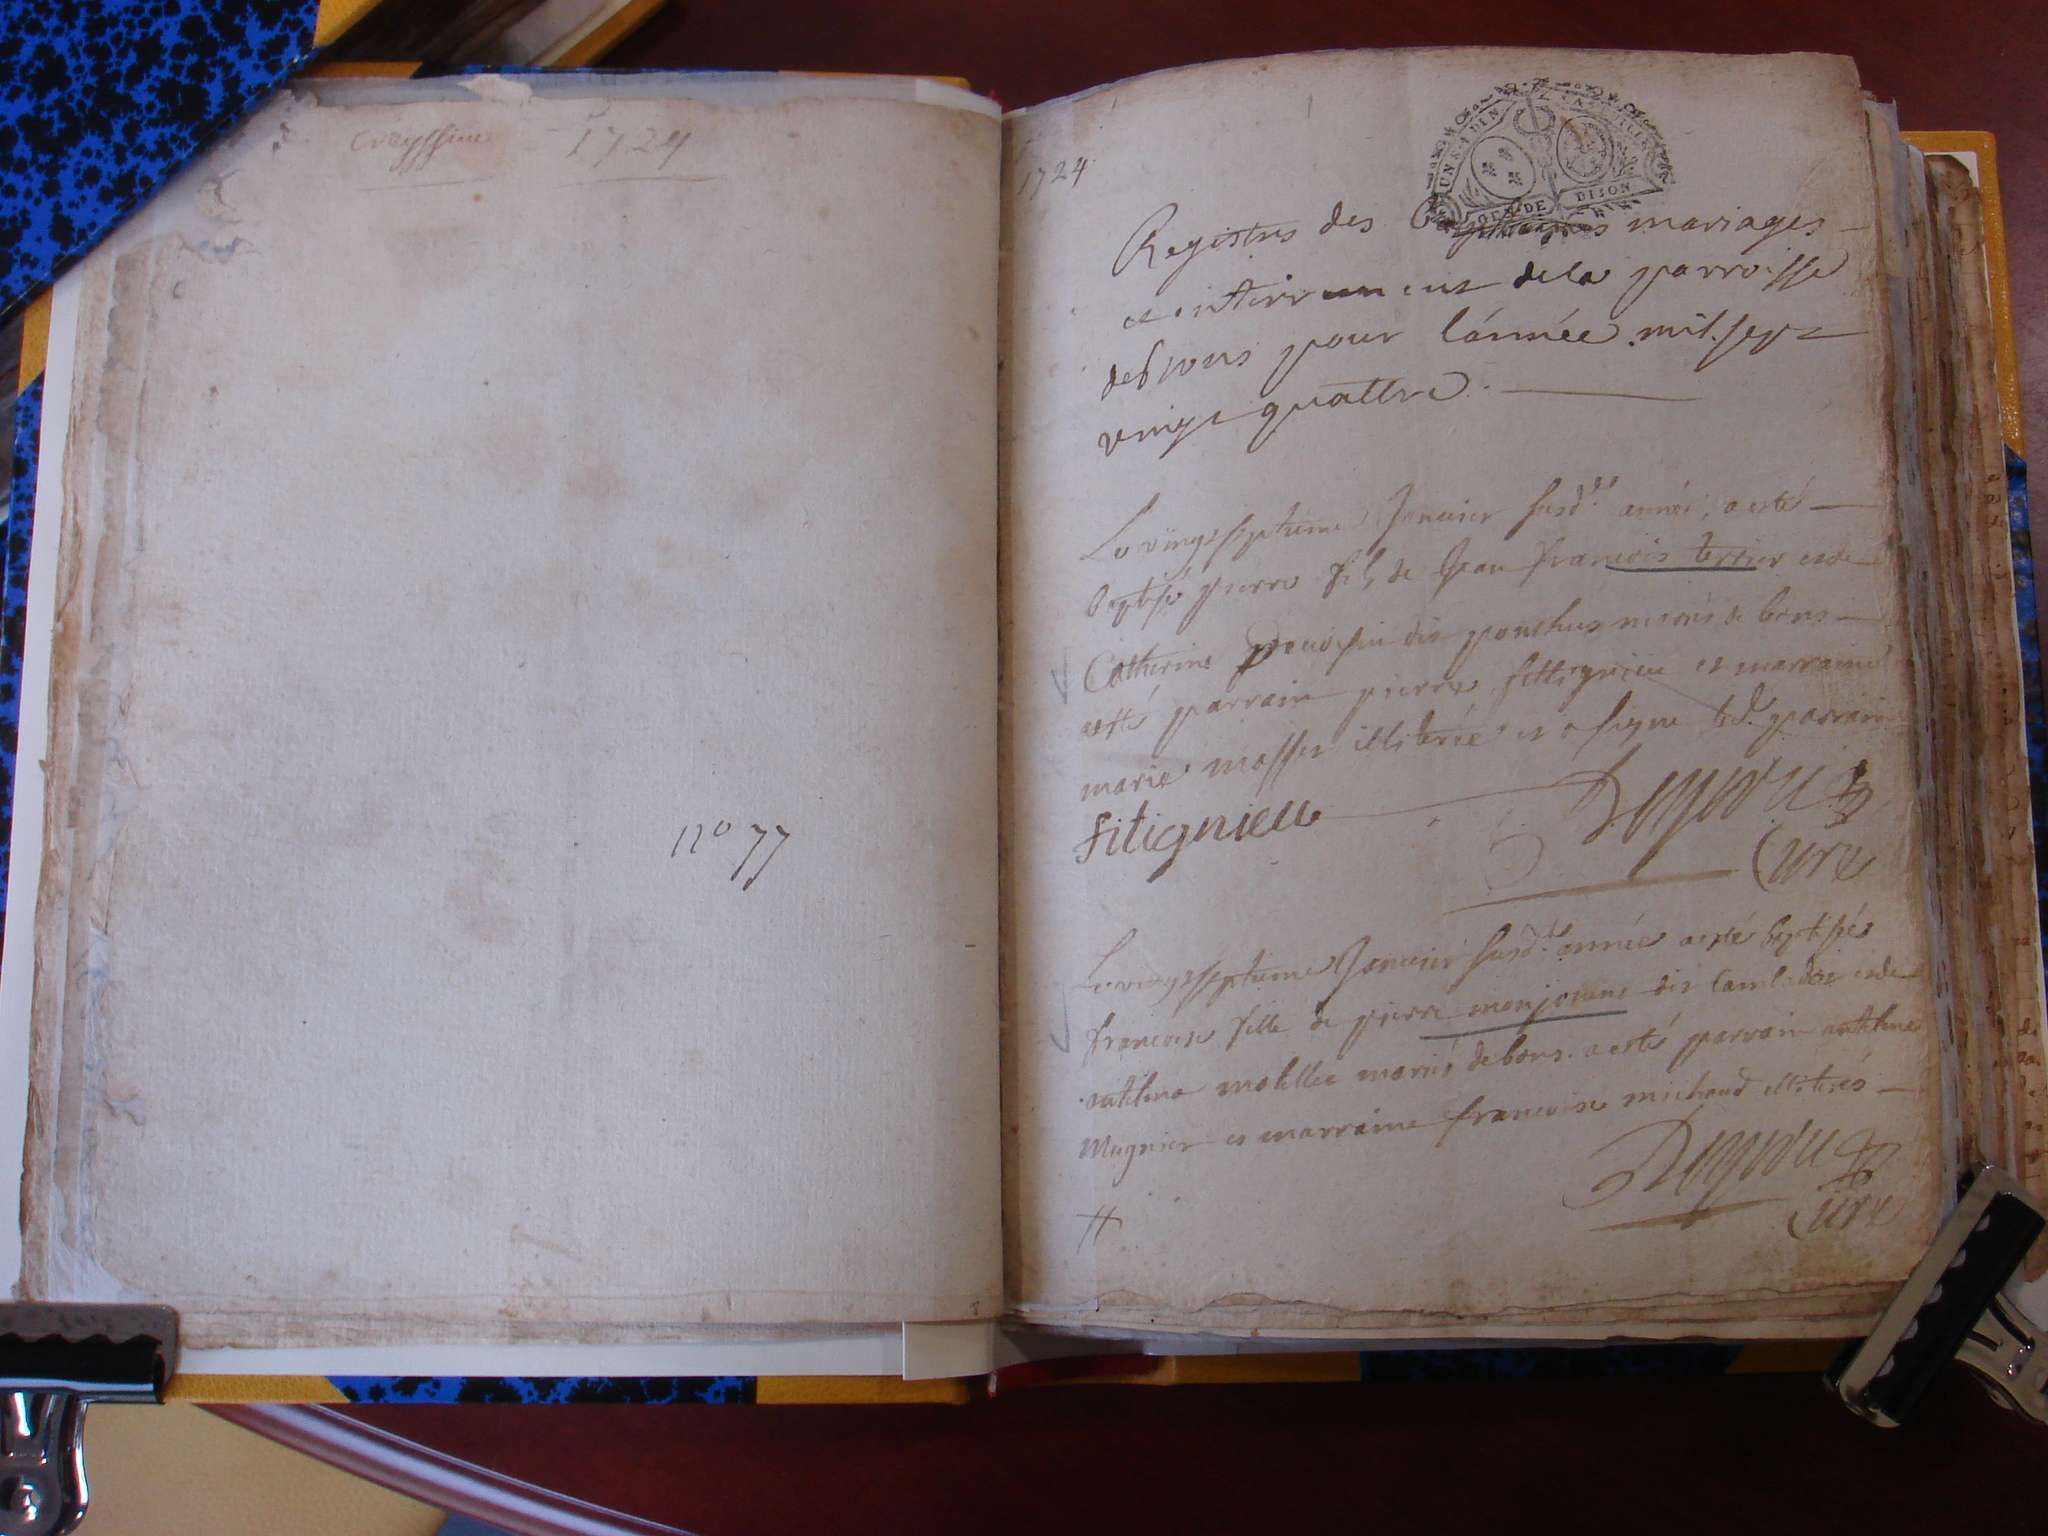 creyssieu 1724
n° 77
1724
GEN DE DIJON
Registres des Baptesmes mariages
et enterrement de la parroisse
de bons pour l'année mil sept
vingt quattre.
Le vingt septieme Janvier susd.te année, a esté
baptisé pierre fils de Jean francois terrier et de
Catherine dit ponthus mariés de bons
a esté parrain pierre fittignieu et marraine
marie mosset illiterée et a signé led. parrain
fitignieu
Curé
Le vingt septieme Janvier susd.te année a esté baptisée
francoise fille de pierre monjoient dit et de
anthema mariés de bons. a esté parrain anthelme
Mugnier et marraine francoise michaud illiterés
Curé